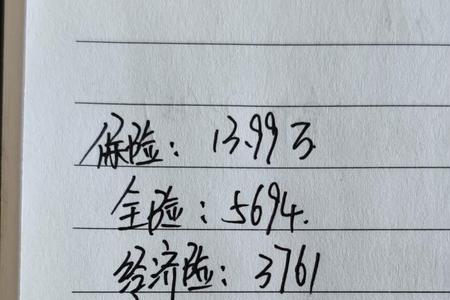 保险：13.99万
全险：5694.
经济险：3761